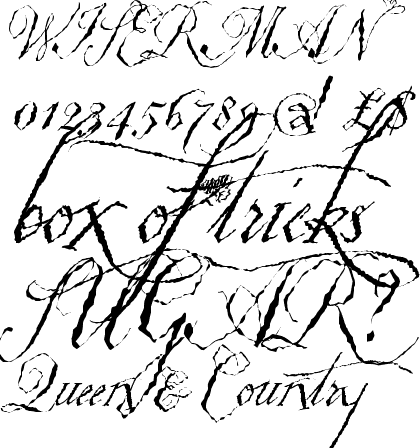 WISERMAN
0123456789 @ £$
box of tricks
SUGAR?
Queen & Country